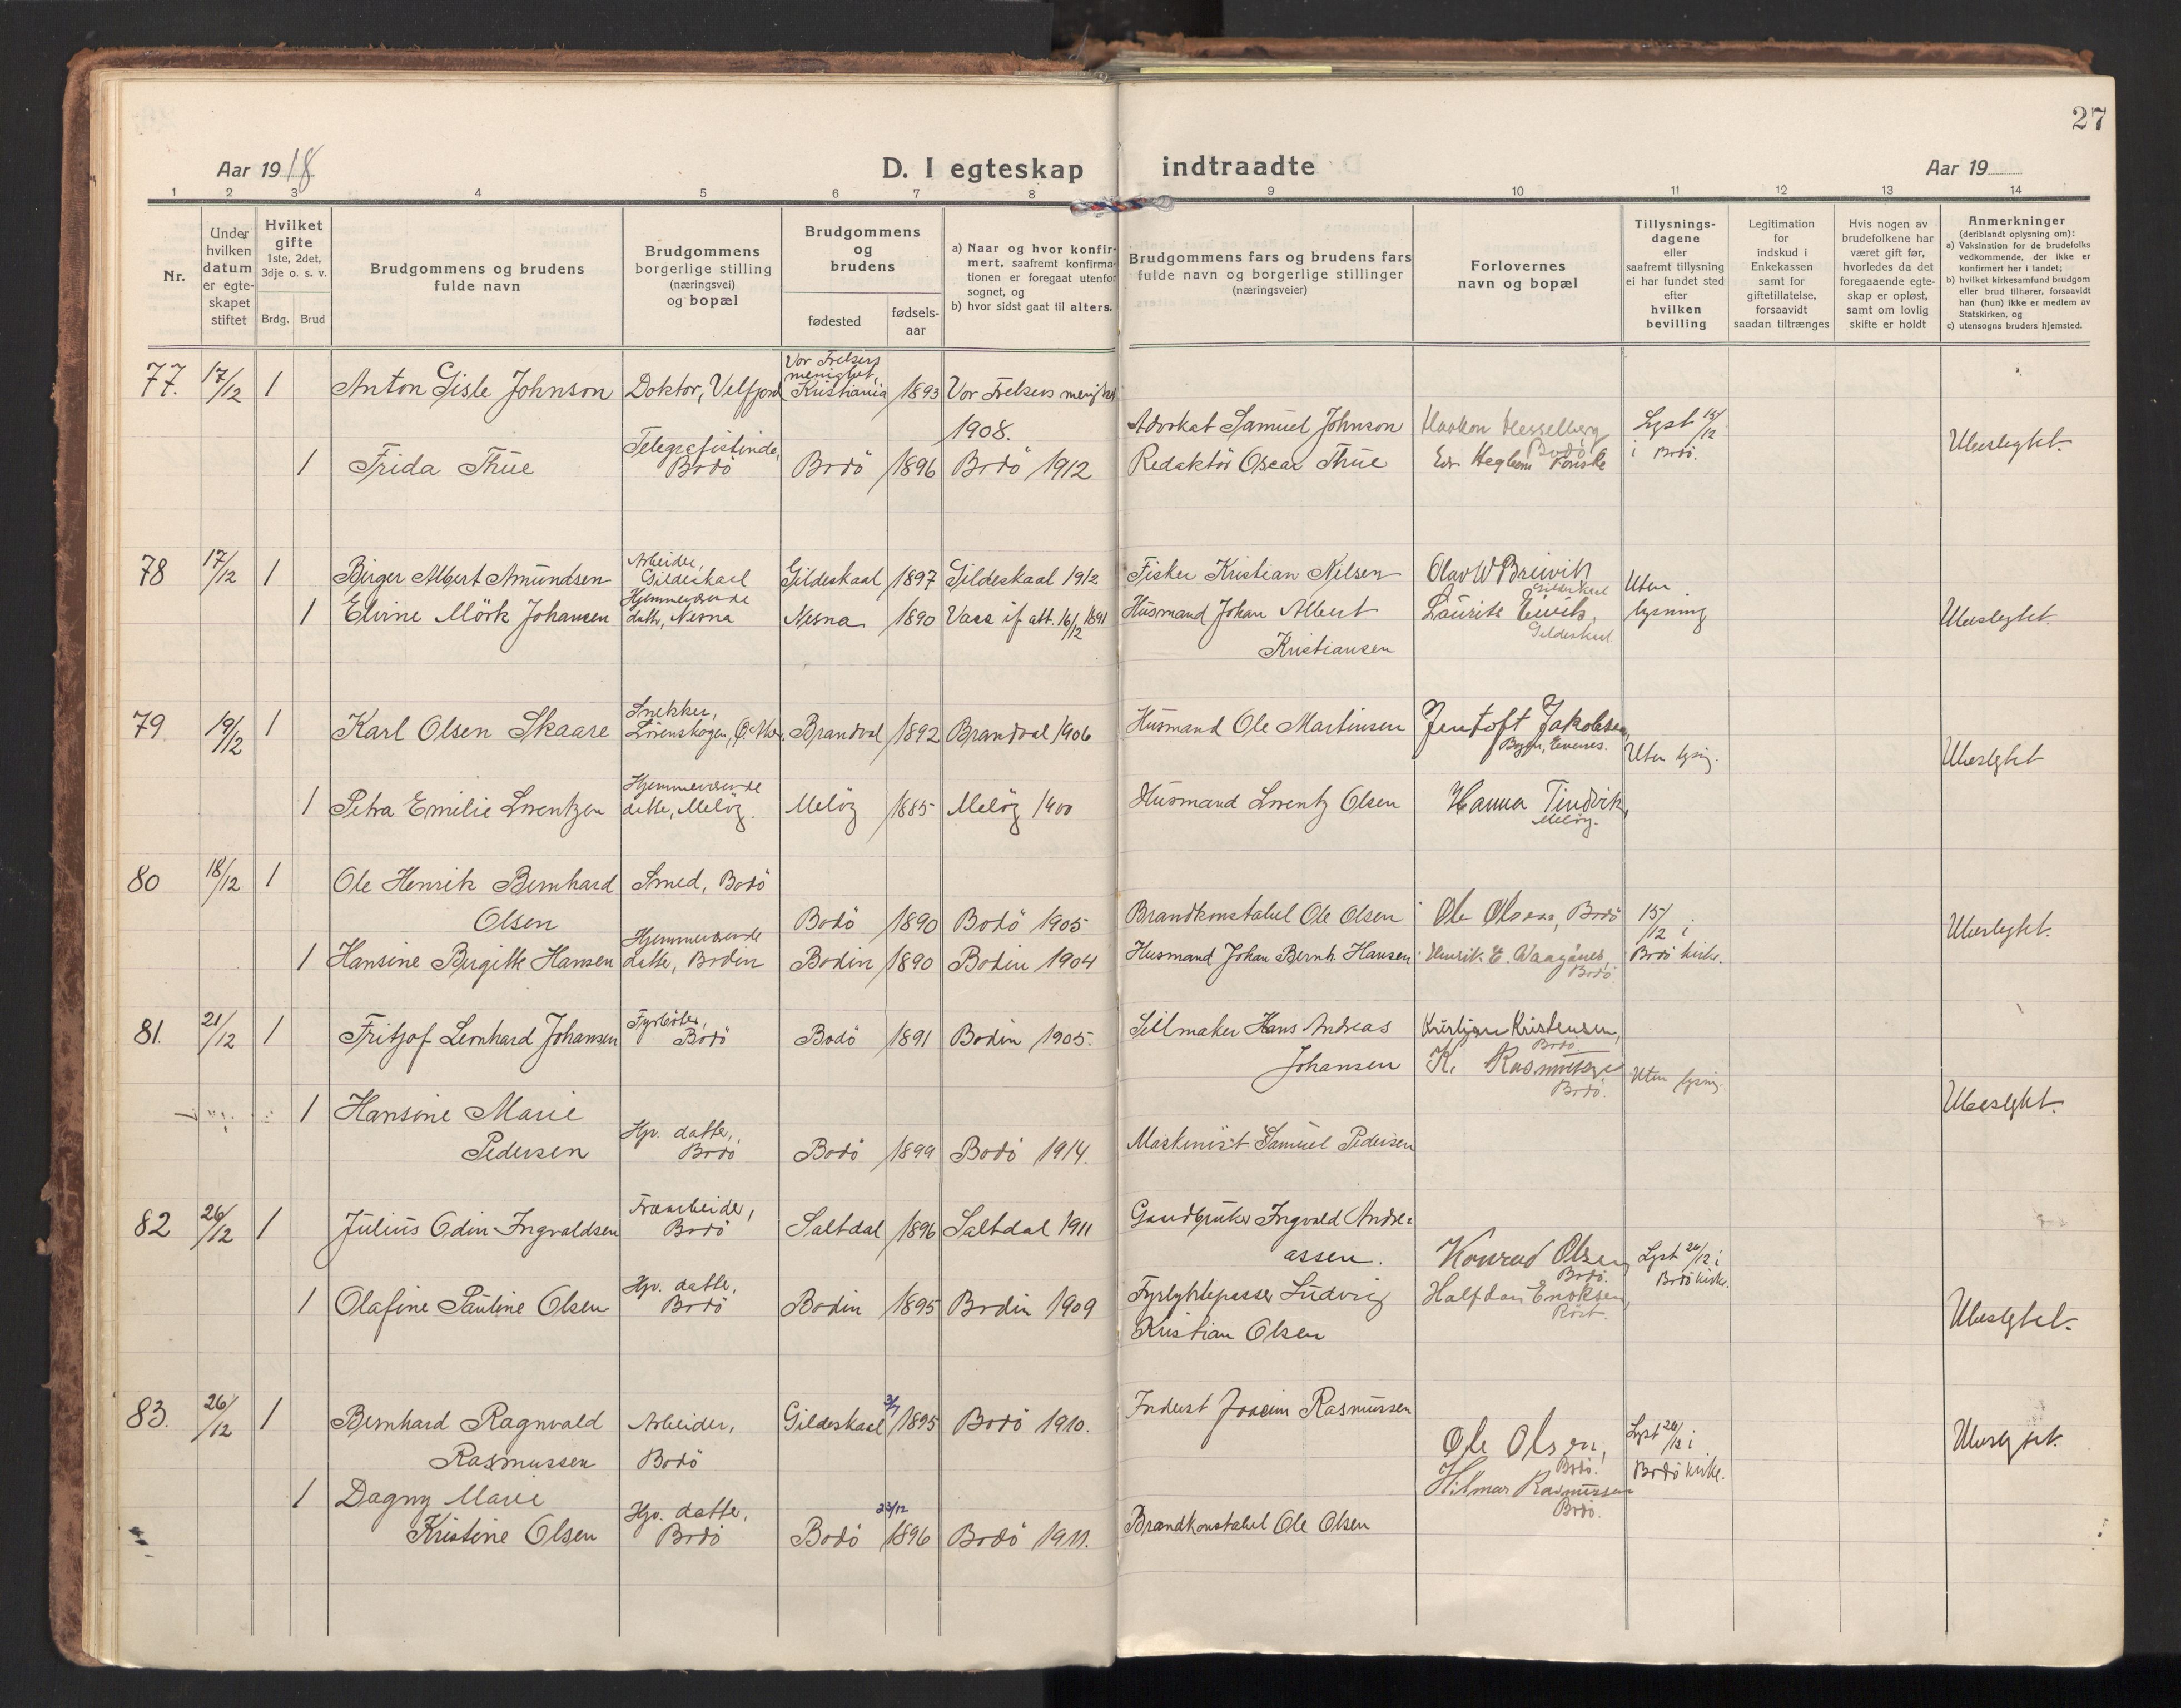 27
Aar 1918
D. I egteskap indtraadte
Aar 19
1 2 3 4 5 6 7 8 9 10 11 12 13 14
Nr.
Under hvilken datum er egteskapet stiftet
Hvilket gifte
1ste, 2det, 3dje o. s. v.
Brdg. Brud
Brudgommens og brudens fulde navn
Brudgommens borgerlige stilling (næringsvei) og bopæl
Brudgommens og brudens
fødested
fødsels-aar
a) Naar og hvor konfirmert, saafremt konfirmationen er foregaat utenfor sognet, og
b) hvor sidst gaat til alters.
Brudgommens fars og brudens fars fulde navn og borgerlige stillinger (næringsveier)
Forlovernes navn og bopæl
Tillysningsdagene eller saafremt tillysning ei har fundet sted efter hvilken bevilling
Legitimation for indskud i Enkekassen samt for giftetillatelse, forsaavidt saadan tiltrænges
Hvis nogen av brudefolkene har været gift før, hvorledes da det foregaaende egteskap er opløst, samt om lovlig skifte er holdt
Anmerkninger (deriblandt oplysning om):
a) Vaksination for de brudefolks vedkommende, der ikke er konfirmert her i landet;
b) hvilket kirkesamfund brudgom eller brud tilhører, forsaavidt han (hun) ikke er medlem av Statskirken, og
c) utensogns bruders hjemsted.
77. 17/12 1 Anton Gisle Johnson Doktor, Velfjord Vor Frelsers menighet, Kristiania 1893 Vor Frelsers menighet 1908. Advokat Samuel Johnson Haakon Hesselberg Bodö Lyst 15/12 i Bodö.
1 Frida Thue Telegrafistinde, Bodö Bodö 1896 Bodö 1912 Redaktör Oscar Thue Fauske Ubeslegtet.
78 17/12 1 Birger Albert Amundsen Arbeider, Gildeskaal Gildeskaal 1897 Gildeskaal 1912 Fisker Kristian Nilsen Olav W Breivik Gildeskaal Uten lysning
1 Elvine Mörk Johansen Hjemmeværende datter, Nesna Nesna 1890 Vacc if att. 16/12 1891 Husmand Johan Albert Kristiansen Laurits Gildeskaal Ubeslegtet.
79 19/12 1 Karl Olsen Skaare Snekker, Lörenskogen, Ö. Aker, Brandval 1892 Brandval 1906 Husmand Ole Martinsen Jentoft Jakobsen, Evenes. Uten lysnig.
1 Petra Emilie Lorentzen Hjemmeværende datter, Melöy. Melöy 1885 Melöy 1900 Husmand Lorentz Olsen Hanna Tindvik, Melöy. Ubeslegtet
80 18/12 1 Ole Henrik Bernhard Olsen Smed, Bodö Bodö 1890 Bodö 1905 Brandkonstabel Ole Olsen Ole Olsen, Bodö 15/12 i Bodö kirke.
1 Hansine Birgitte Hansen Hjemmeværende datter, Bodin Bodin 1890 Bodin 1904 Husmand Johan Bernh. Hansen Henrik E. Vaagönes, Bodö Ubeslegtet.
81. 21/12 1 Fritjof Leonhard Johansen Fyrböter, Bodö Bodö 1891 Bodin 1905. Seilmaker Hans Andreas Johansen Kristjan Kristensen, Bodö Uten lysnig.
1 Hansine Marie Pedersen Hjv. datter, Bodö Bodö 1899 Bodö 1914. Maskinist Samuel Pedersen K. Rasmussen Bodö. Ubeslegtet.
82 26/12 1 Julius Odin Ingvaldsen Træarbeider, Bodö Saltdal 1896 Saltdal 1911 Gaardbruker Ingvald Andreassen. Konrad Olsen Bodö. Lyst 26/12 i Bodö kirke.
1 Olafine Pauline Olsen Hjv. datter, Bodö Bodin 1895 Bodin 1909 Fyrlygtepasser Ludvig Kristian Olsen Halfdan Enoksen, Röst. Ubeslegtet.
83. 26/12 1 Bernhard Ragnvald Rasmussen Arbeider, Bodö Gildeskaal 3/7 1895 Bodö 1910. Inderst Joacim Rasmussen Ole Olsen, Bodö. Lyst 26/12 i Bodö kirke. Ubeslegtet.
1 Dagny Marie Kristine Olsen Hjv. datter, Bodö Bodö 23/12 1896 Bodö 1911. Brandkonstabel Ole Olsen Hilmar Rasmussen Bodö.